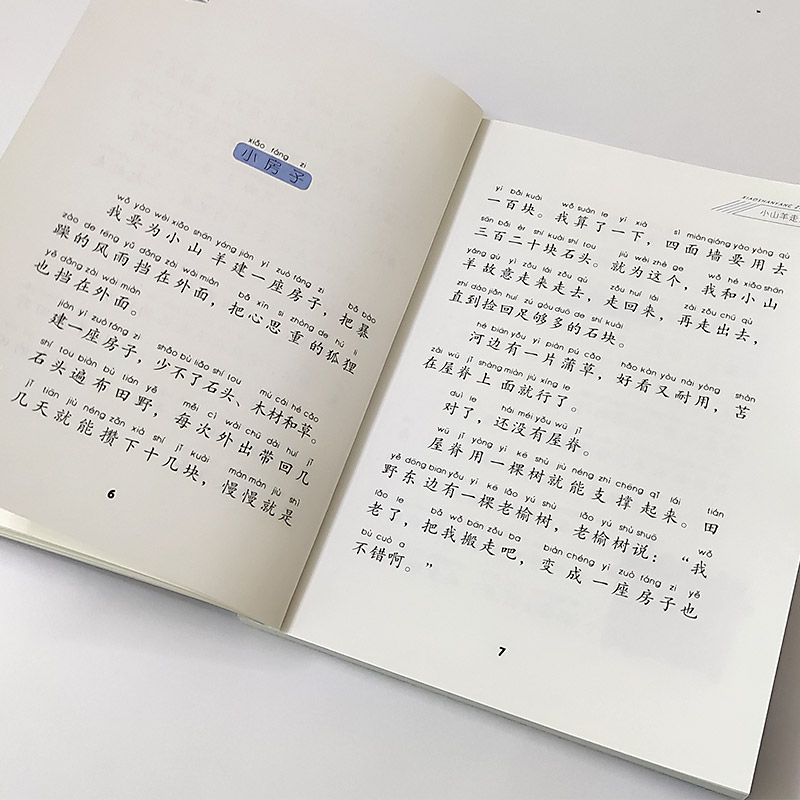 xiǎo fáng zi
小房子
wǒ yào wèi xiǎo shān yáng jiàn yí zuò fáng zi bǎ bào
我要为小山羊建一座房子，把暴
zào de fēng yǔ dǎng zài wài miàn bǎ xīn si zhòng de hú li
躁的风雨挡在外面，把心思重的狐狸
yě dǎng zài wài miàn
也挡在外面。
jiàn yí zuò fáng zi shǎo bù liǎo shí tou mù cái hé cǎo
建一座房子，少不了石头、木材和草。
shí tou biàn bù tián yě měi cì wài chū dài huí jǐ
石头遍布田野，每次外出带回几
jǐ tiān jiù néng zǎn xià shí jǐ kuài màn màn jiù shì
几天就能攒下十几块，慢慢就是
6
XIAOSHANYANG
小山羊走
yì bǎi kuài wǒ suàn le yí xià sì miàn qiáng yào yòng qù
一百块。我算了一下，四面墙要用去
sān bǎi èr shí kuài shí tou jiù wèi zhè ge wǒ hé xiǎo shān
三百二十块石头。就为这个，我和小山
yáng gù yì zǒu lái zǒu qù zǒu huí lái zài zǒu chū qù
羊故意走来走去，走回来，再走出去，
zhí dào jiǎn huí zú gòu duō de shí kuài
直到捡回足够多的石块。
hé biān yǒu yí piàn pú cǎo hǎo kàn yòu nài yòng shàn
河边有一片蒲草，好看又耐用，苫
zài wū jǐ shàng miàn jiù xíng le
在屋脊上面就行了。
duì le hái méi yǒu wū jǐ
对了，还没有屋脊。
wū jǐ yòng yì kē shù jiù néng zhī chēng qǐ lái tián
屋脊用一棵树就能支撑起来。田
yě dōng bian yǒu yì kē lǎo yú shù lǎo yú shù shuō wǒ
野东边有一棵老榆树，老榆树说：“我
lǎo le bǎ wǒ bān zǒu ba biàn chéng yí zuò fáng zi yě
老了，把我搬走吧，变成一座房子也
bú cuò a
不错啊。”
7